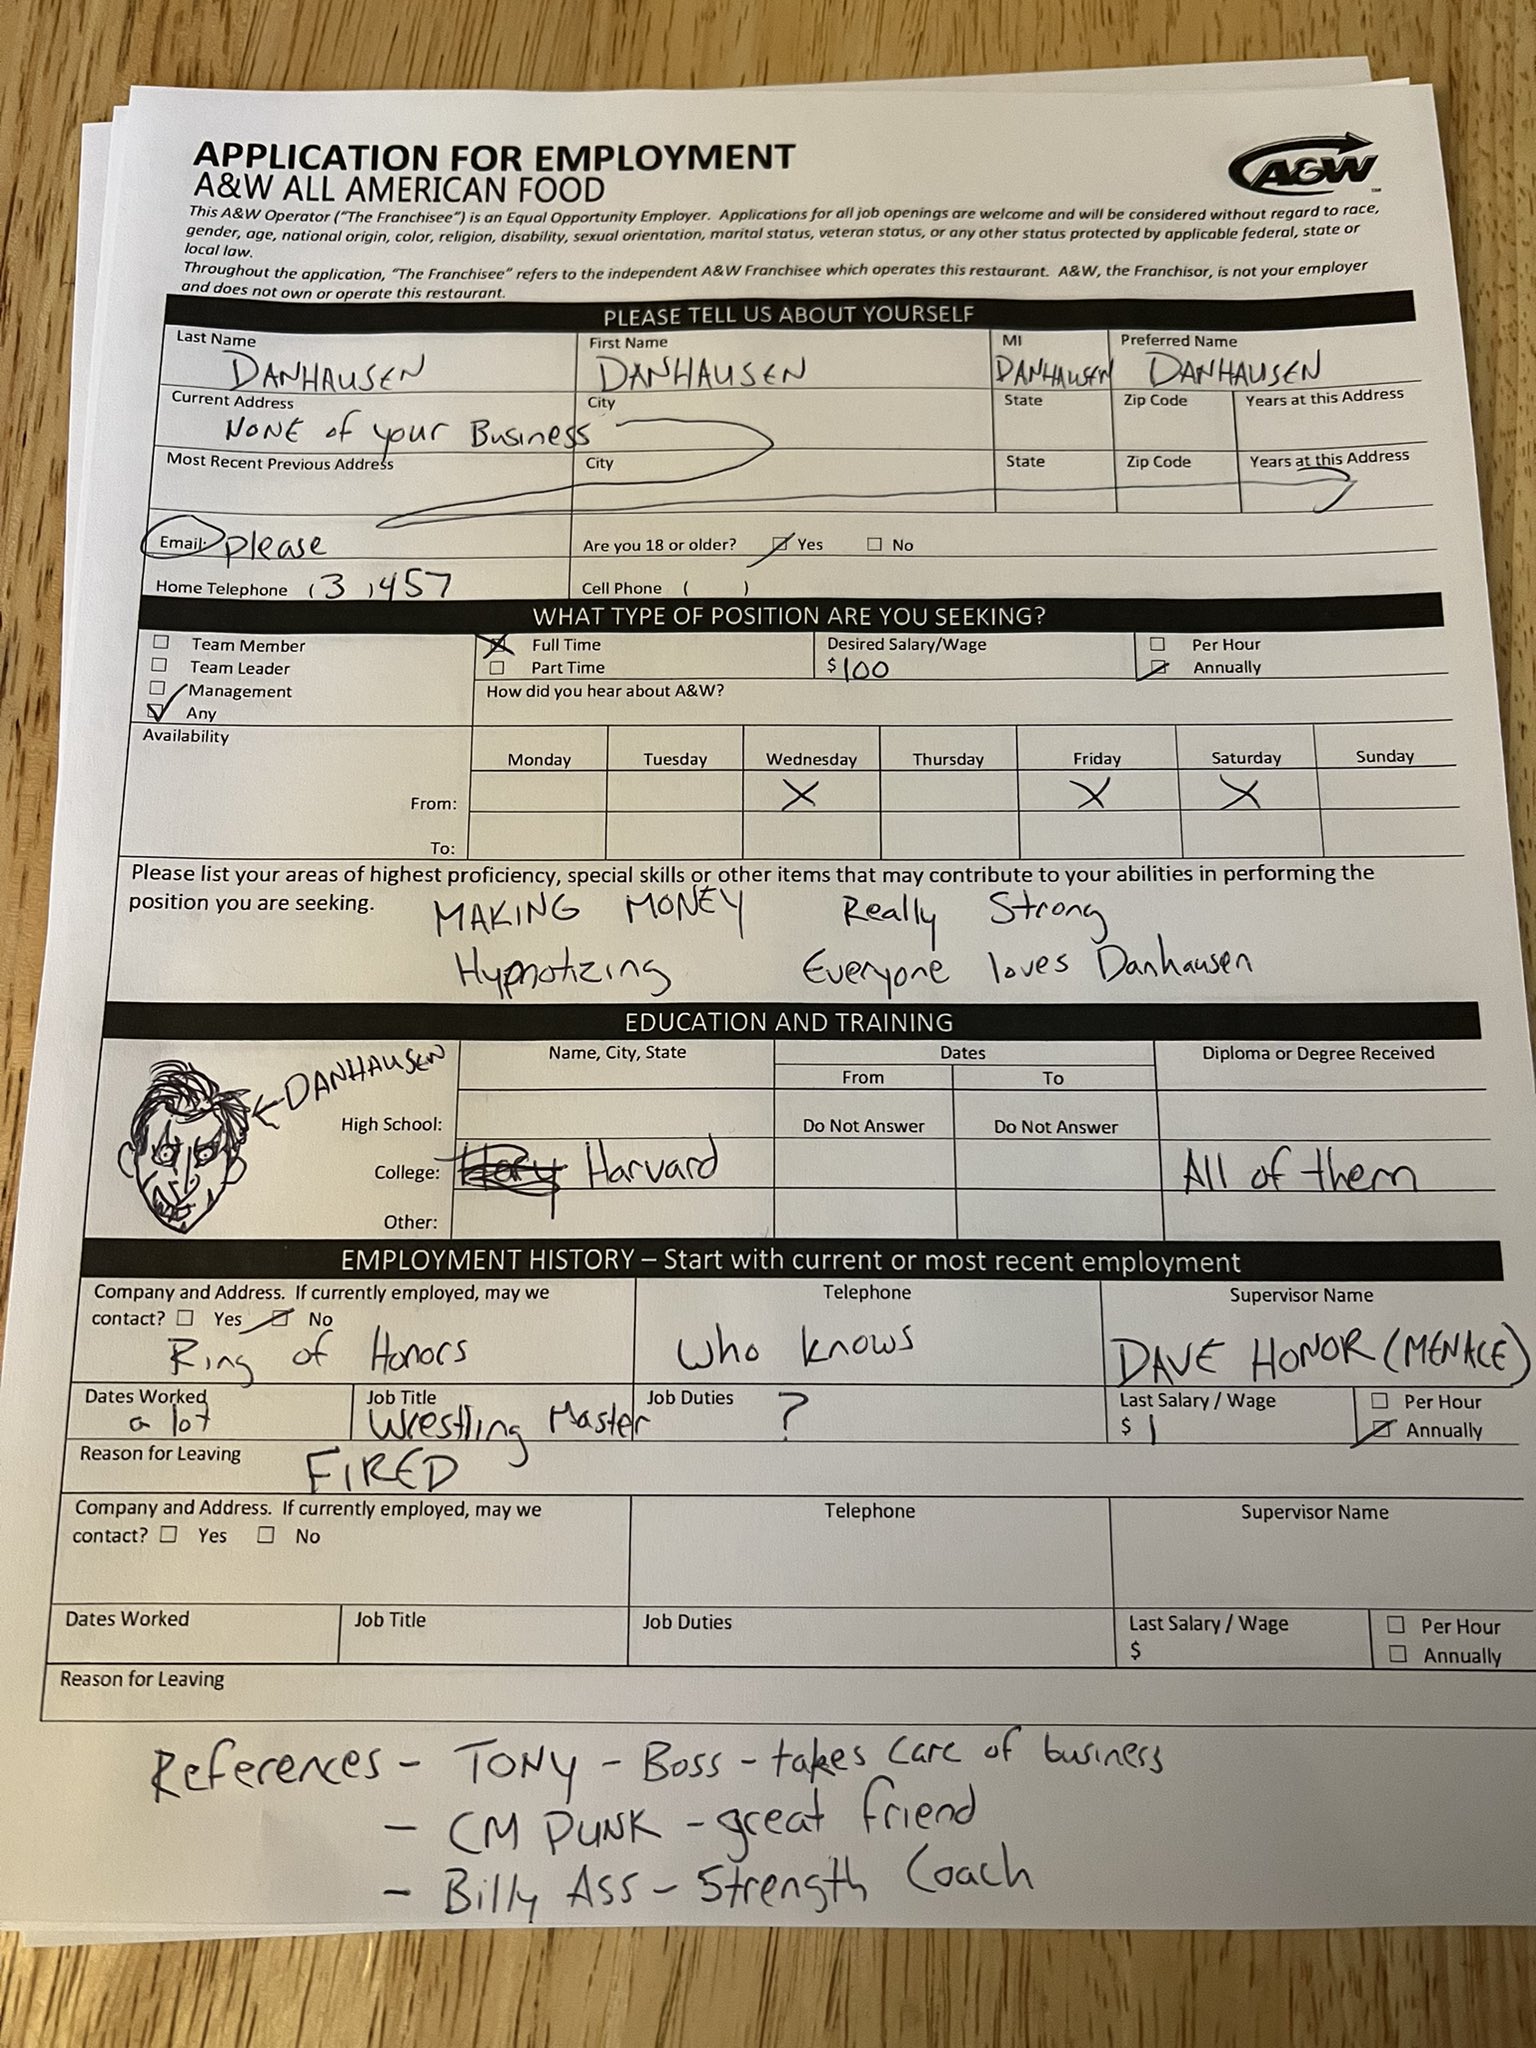 APPLICATION FOR EMPLOYMENT
A&W ALL AMERICAN FOOD
A&W
This A&W Operator ("The Franchisee") is an Equal Opportunity Employer. Applications for all job openings are welcome and will be considered without regard to race,
gender, age, national origin, color, religion, disability, sexual orientation, marital status, veteran status, or any other status protected by applicable federal, state or
local law.
Throughout the application, "The Franchisee" refers to the independent A&W Franchisee which operates this restaurant. A&W, the Franchisor, is not your employer
and does not own or operate this restaurant.
PLEASE TELL US ABOUT YOURSELF
Last Name First Name MI Preferred Name
DANHAUSEN DANHAUSEN DANHAUSEN DANHAUSEN
Current Address City State Zip Code Years at this Address
NONE of your Business
Most Recent Previous Address City State Zip Code Years at this Address
Email: please Are you 18 or older? Yes No
Home Telephone (3 )457 Cell Phone ( )
WHAT TYPE OF POSITION ARE YOU SEEKING?
Team Member Full Time Desired Salary/Wage Per Hour
Team Leader Part Time $100 Annually
Management How did you hear about A&W?
Any
Availability
Monday Tuesday Wednesday Thursday Friday Saturday Sunday
From: X X X
To:
Please list your areas of highest proficiency, special skills or other items that may contribute to your abilities in performing the
position you are seeking. MAKING MONEY Really Strong
Hypnotizing Everyone loves Danhausen
EDUCATION AND TRAINING
DANHAUSEN Name, City, State Dates Diploma or Degree Received
From To
High School: Do Not Answer Do Not Answer
College: Harvard All of them
Other:
EMPLOYMENT HISTORY – Start with current or most recent employment
Company and Address. If currently employed, may we Telephone Supervisor Name
contact? Yes No
Ring of Honors Who knows DAVE HONOR (MENACE)
Dates Worked Job Title Job Duties Last Salary / Wage Per Hour
a lot Wrestling Master ? $ 1 Annually
Reason for Leaving FIRED
Company and Address. If currently employed, may we Telephone Supervisor Name
contact? Yes No
Dates Worked Job Title Job Duties Last Salary / Wage Per Hour
$ Annually
Reason for Leaving
References - TONY - Boss - takes care of business
- CM PUNK - great friend
- Billy Ass - Strength Coach